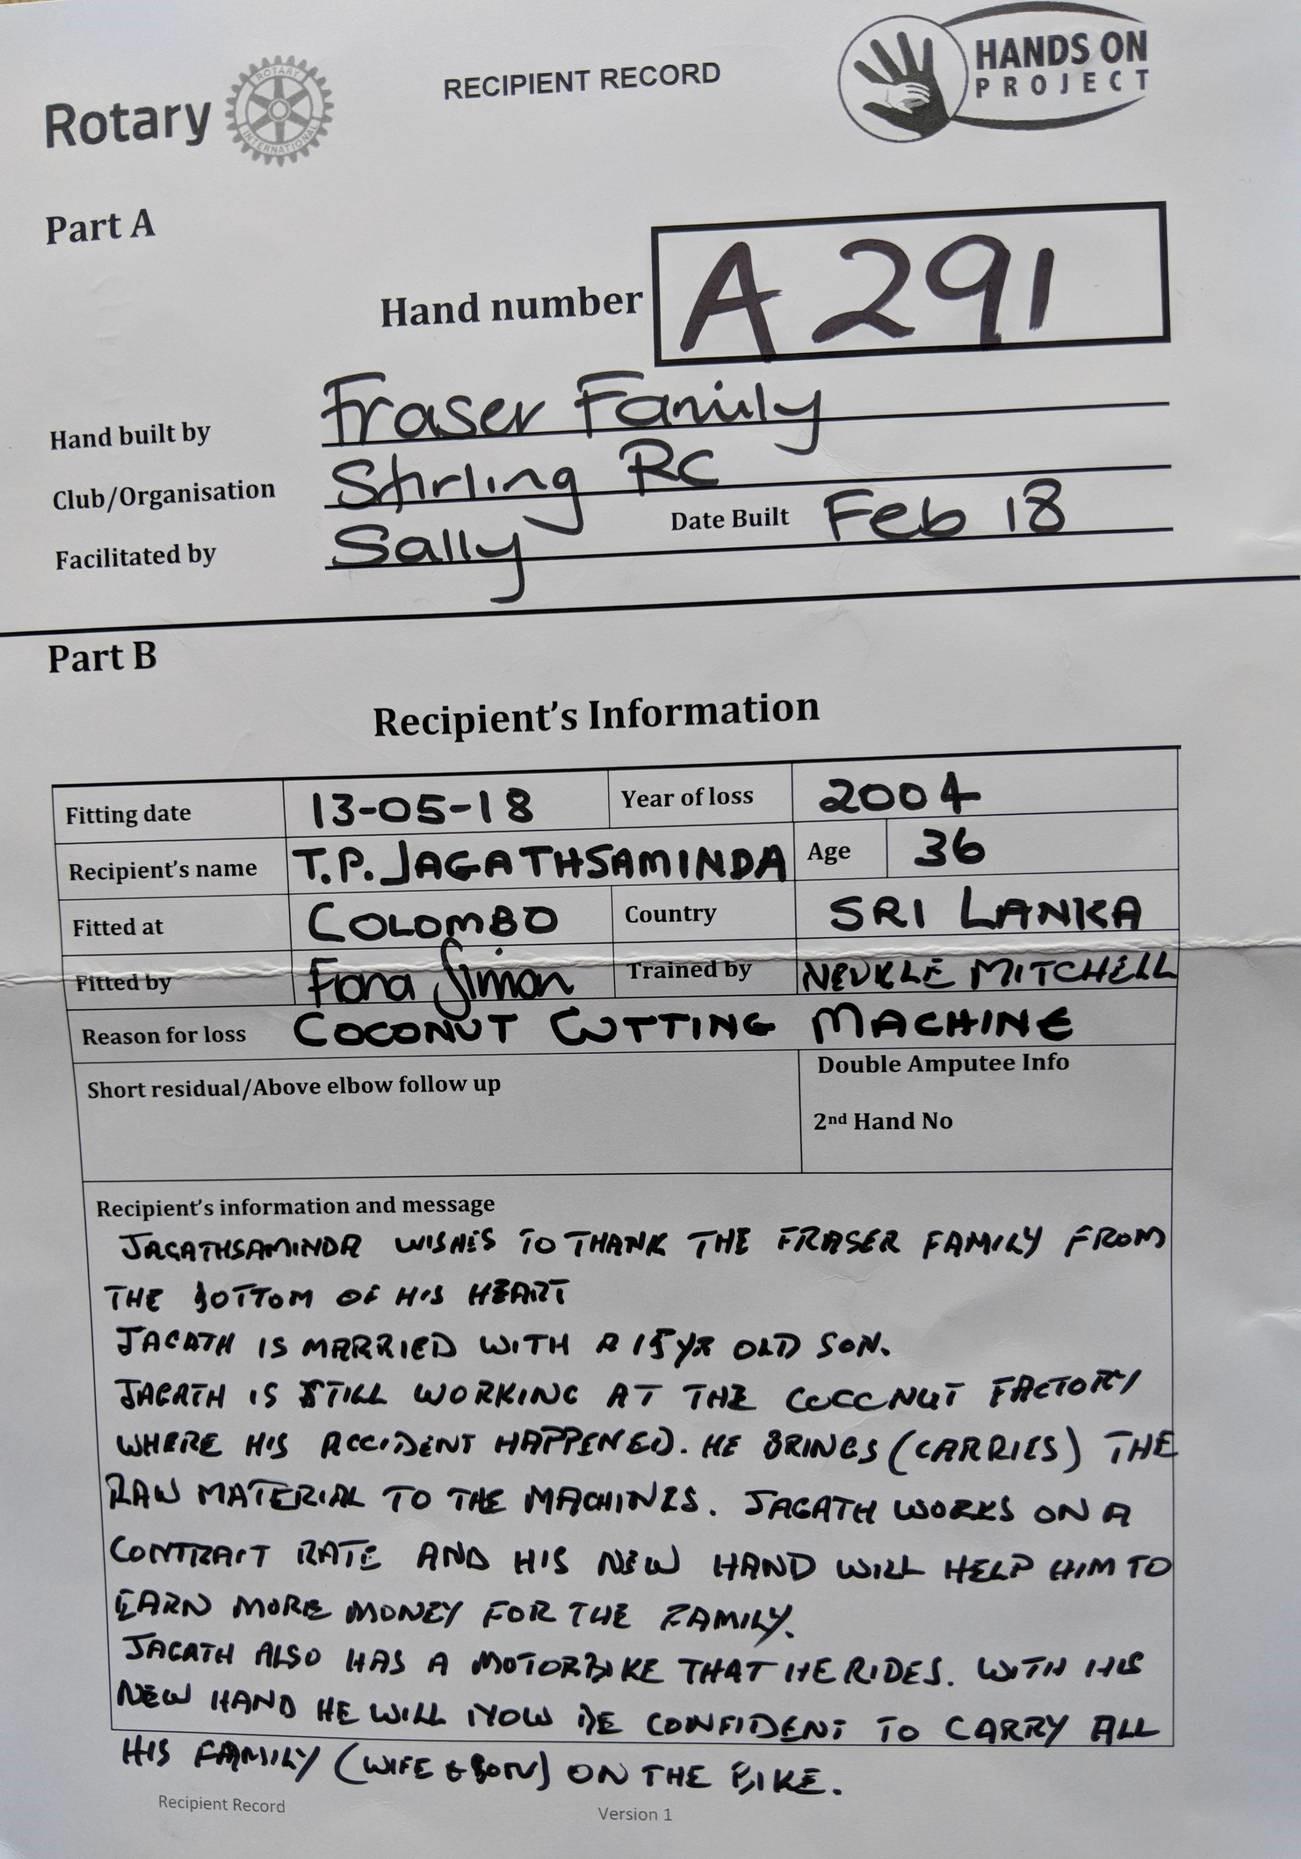 Rotary
ROTARY
INTERNATIONAL
RECIPIENT RECORD
HANDS ON
PROJECT
Part A
Hand number A 291
Hand built by Fraser Family
Club/Organisation Stirling RC
Facilitated by Sally Date Built Feb 18
Part B
Recipient's Information
Fitting date 13-05-18 Year of loss 2004
Recipient's name T.P. JAGATHSAMINDA Age 36
Fitted at COLOMBO Country SRI LANKA
Fitted by Fiona Simon Trained by MITCHELL
Reason for loss COCONUT CUTTING MACHINE
Short residual/Above elbow follow up Double Amputee Info
2nd Hand No
Recipient's information and message
JAGATHSAMINDA WISHES TO THANK THE FRASER FAMILY FROM
THE BOTTOM OF HIS HEART
JAGATH IS MARRIED WITH A 15 YR OLD SON.
JAGATH IS STILL WORKING AT THE COCONUT FACTORY
WHERE HIS ACCIDENT HAPPENED. HE BRINGS (CARRIES) THE
RAW MATERIAL TO THE MACHINES. JAGATH WORKS ON A
CONTRACT RATE AND HIS NEW HAND WILL HELP HIM TO
EARN MORE MONEY FOR THE FAMILY.
JAGATH ALSO HAS A MOTORBIKE THAT HE RIDES. WITH HIS
NEW HAND HE WILL NOW BE CONFIDENT TO CARRY ALL
HIS FAMILY (WIFE & SON) ON THE BIKE.
Recipient Record Version 1